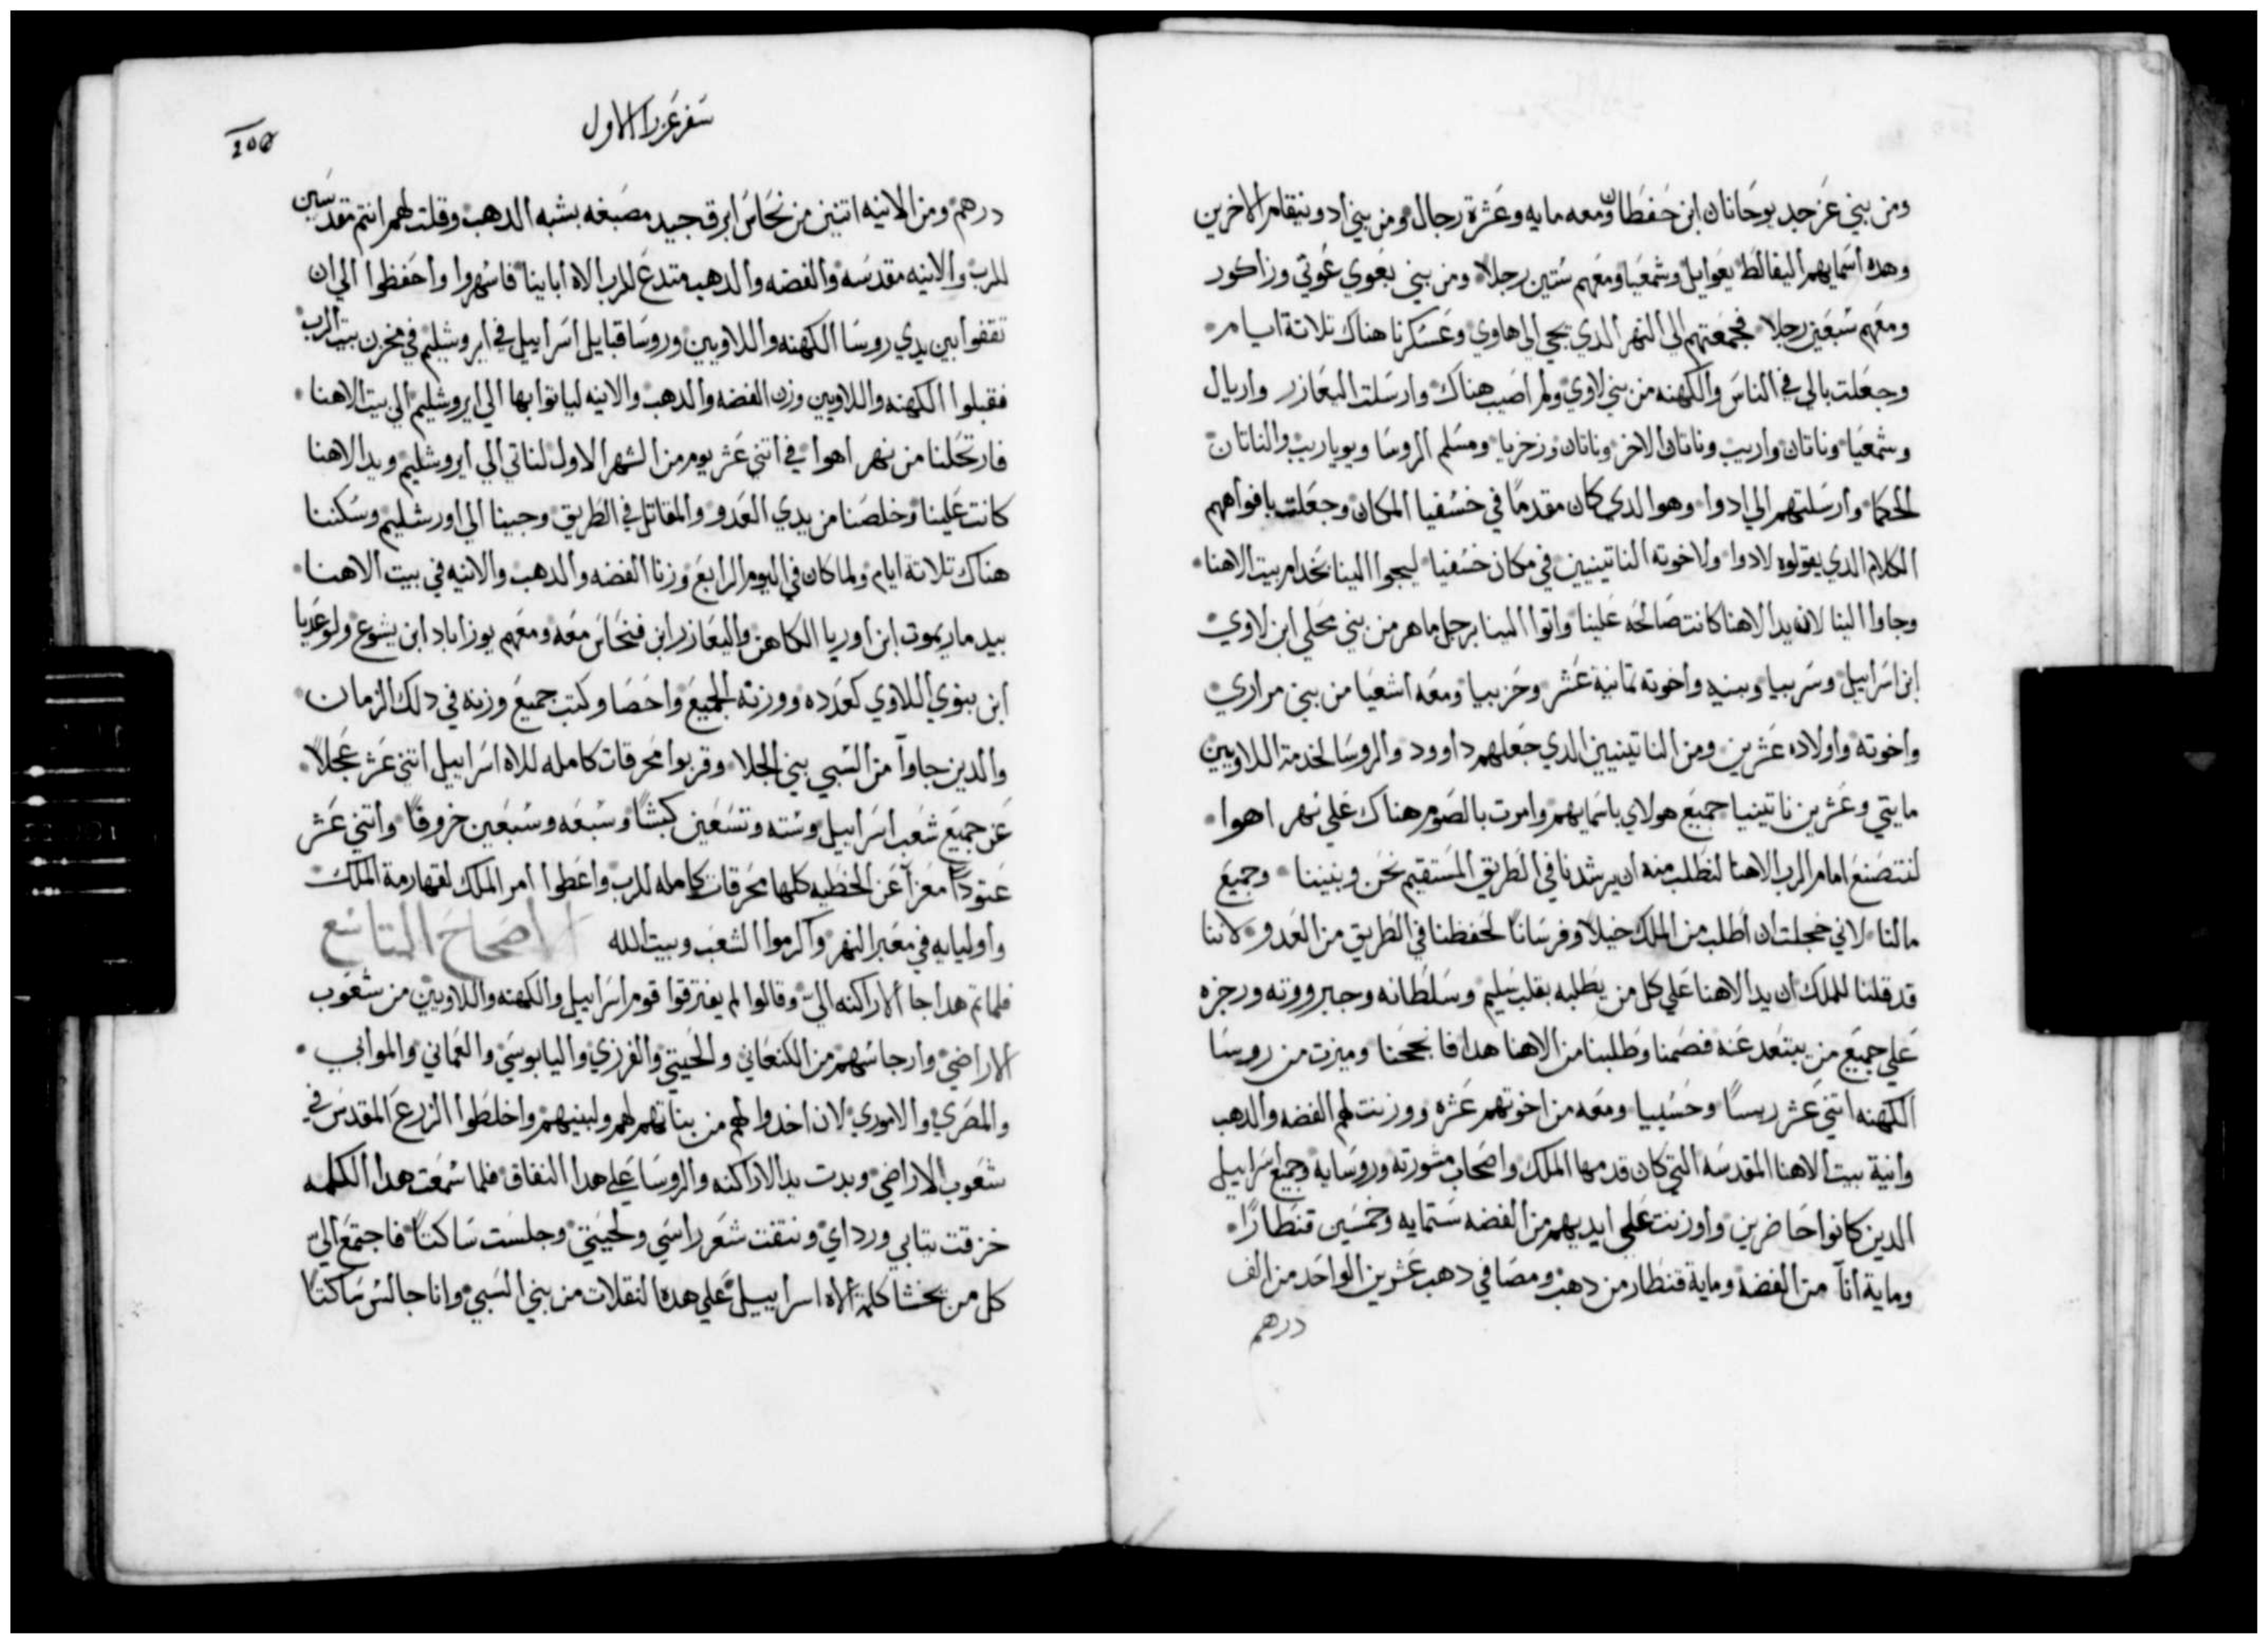 ومن بني عزجد يوحانان ابن حفطان ومعه مايه وعشرة رجال ومن بني ادونيقام الاخرين
وهده اسمايهم اليفالط يعوايل وشمعيا ومعهم ستين رجلا ومن بني بغوي غوتي وزاكور
ومعهم سبعين رجلا فجمعتهم الي النهر الدي يجي الي اهاوي وعسكرنا هناك تلاتة ايام
وجعلت بالي في الناس والكهنه من بني لاوي ولم اصيب هناك وارسلت اليعازر واريال
وشمعيا وناتان واريب وناتان الاخر وناتان وزخريا ومسلم الروسا ويوياريب والناتان
الحكما وارسلتهم الي ادوا وهو الدي كان مقدما في خسفيا المكان وجعلت بافواههم
الكلام الدي يقولوه لادوا ولاخوته الناتينيين في مكان خسفيا ليجوا الينا بخدام بيت الاهنا
وجاوا الينا لان يد الاهنا كانت صالحه علينا واتوا الينا برجل ماهر من بني محلي ابن لاوي
ابن اسراييل وسربيا وبنيه واخوته تمانية عشر وحزبيا ومعه اشعيا من بني مراري
واخوته واولاده عشرين ومن الناتينيين الدي جعلهم داوود والروسا لخدمة اللاويين
مايتي وعشرين ناتينيا جميع هولاي باسمايهم وامرت بالصوم هناك علي نهر اهوا
لنتصنع امام الرب الاهنا لنطلب منه ان يرشدنا في الطريق المستقيم نحن وبنينا وجميع
مالنا لاني خجلت ان اطلب من الملك خيلا وفرسانا لحفظنا في الطريق من العدو لاننا
قد قلنا للملك ان يد الاهنا علي كل من يطلبه بقلب سليم وسلطانه وجبرووته ورجزه
علي جميع من يبتعد عنه فصمنا وطلبنا من الاهنا هدا فانجحنا وميزت من روسا
الكهنه اتني عشر ريسا وحسبيا ومعه من اخوتهم عشره ووزنت لهم الفضه والدهب
وانية بيت الاهنا المقدسه التي كان قدمها الملك واصحاب مشورته وروسايه وجميع اسراييل
الدين كانوا حاضرين واوزنت علي ايديهم من الفضه ستمايه وخمسين قنطارا
وماية انآ من الفضه وماية قنطار من دهب ومصافي دهب عشرين الواحد من الف
درهم
سفر عزرا الاول
درهم ومن الانيه اتنين من نحاس ابرق جيد مصبغه بشبه الدهب وقلت لهم انتم مقدسين
للرب والانيه مقدسه والفضه والدهب متدع للرب الاه ابابينا فاسهروا واحفظوا الي ان
تقفوا بين يدي روسا الكهنه واللاويين وروسا قبايل اسراييل في ايروشليم في مخزن بيت الرب
فقبلوا الكهنه واللاويين وزن الفضه والدهب والانيه لياتوا بها الي ايروشليم الي بيت الاهنا
فارتحلنا من نهر اهوا في اتني عشر يوم من الشهر الاول لناتي الي ايروشليم ويد الاهنا
كانت علينا وخلصنا من يدي العدو والمقاتل في الطريق وجينا الي اورشليم وسكننا
هناك تلاتة ايام ولما كان في اليوم الرابع وزنا الفضه والدهب والانيه في بيت الاهنا
بيد ماريموت ابن اوريا الكاهن واليعازر ابن فنحاس معه ومعهم يوزاباد ابن يشوع ولوعديا
ابن بنوي اللاوي كعدده ووزنه الجميع واحصا وكتب جميع وزنه في دلك الزمان
والدين جاوآ من السبي بني الجلا وقربوا محرقات كامله للاه اسراييل اتني عشر عجلا
عن جميع شعب اسراييل وسته وتسعين كبشا وسبعه وسبعين خروفا واتني عشر
عتودا معزا عن الخطيه كلها محرقات كامله للرب واعطوا امر الملك لقهارمة الملك
واوليايه في معبر النهر واكرموا الشعب وبيت الله الاصحاح التاسع
فلما تم هدا جا الاراكنه الي وقالوا لم يفترقوا قوم اسراييل والكهنه واللاويين من شعوب
الاراضي وارجاسهم من الكنعاني والحيتي والفرزي واليابوسي والعماني والموابي
والمصري والاموري لان اخدوا لهم من بناتهم لهم ولبنيهم واخلطوا الزرع المقدس في
شعوب الاراضي وبدت يد الاراكنه والروسا علي هدا النفاق فلما سمعت هدا الكلمه
خزقت تيابي ورداي ونتفت شعر راسي ولحيتي وجلست ساكتا فاجتمع الي
كل من يخشا كلمة الاه اسراييل علي هده النقلات من بني السبي وانا جالس ساكتا